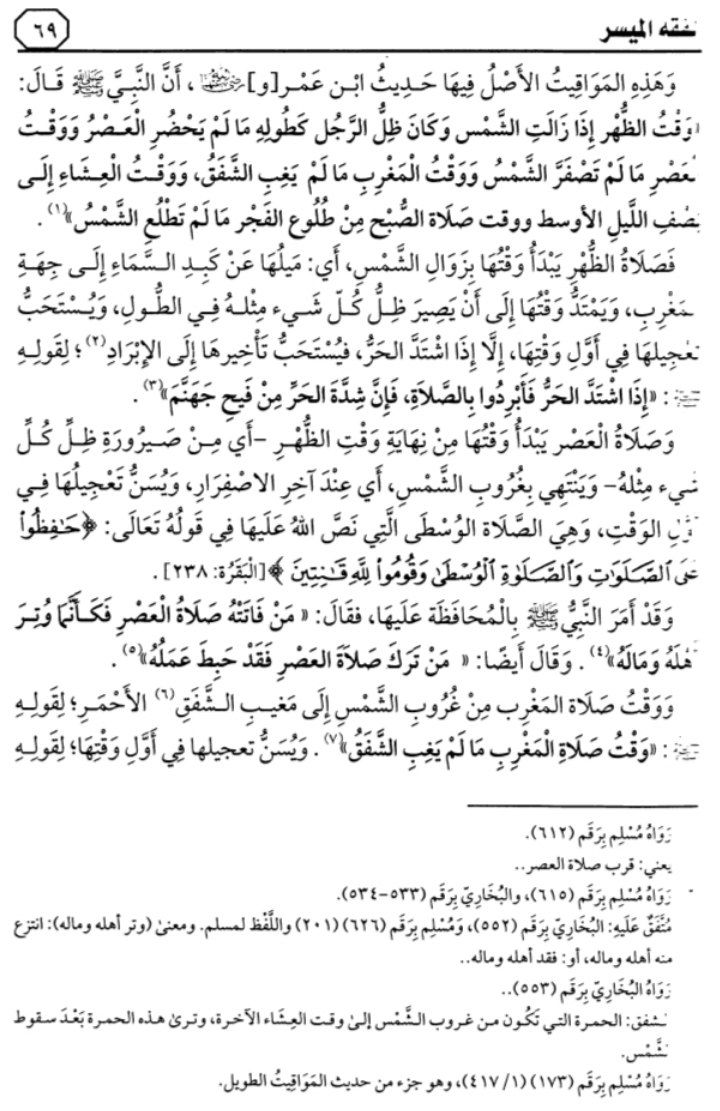 لفقه الميسر
٦٩
وَهَذِهِ المَوَاقِيتُ الأَصْلُ فِيهَا حَدِيثُ ابْنِ عَمْرٍ[و] رضي الله عنهما، أَنَّ النَّبِيَّ ﷺ قَالَ:
«وَقْتُ الظُّهْرِ إِذَا زَالَتِ الشَّمْسُ وَكَانَ ظِلُّ الرَّجُلِ كَطُولِهِ مَا لَمْ يَحْضُرِ الْعَصْرُ وَوَقْتُ
لعَصْرِ مَا لَمْ تَصْفَرَّ الشَّمْسُ وَوَقْتُ الْمَغْرِبِ مَا لَمْ يَغِبِ الشَّفَقُ، وَوَقْتُ الْعِشَاءِ إِلَى
نِصْفِ اللَّيلِ الأوسط ووقت صَلَاة الصُّبْح مِنْ طُلُوعِ الفَجْرِ مَا لَمْ تَطْلُعِ الشَّمْسُ»(١).
فَصَلَاةُ الظُّهْرِ يَبْدَأُ وَقْتُهَا بِزَوَالِ الشَّمْسِ، أَي: مَيلُهَا عَنْ كَبِدِ السَّمَاءِ إِلَى جِهَةِ
لمَغْرِبِ، وَيَمْتَدُّ وَقْتُهَا إِلَى أَنْ يَصِيرَ ظِلُّ كُلِّ شَيءٍ مِثْلهُ فِي الطُّولِ، وَيُسْتَحَبُّ
تَعْجِيلهَا فِي أَوَّلِ وَقْتِهَا، إِلَّا إِذَا اشْتَدَّ الحَرُّ، فيُسْتَحَبُّ تَأْخِيرهَا إِلَى الإِبْرَادِ(٢)؛ لِقَولِهِ
ﷺ: «إِذَا اشْتَدَّ الحَرُّ فَأَبْرِدُوا بِالصَّلَاةِ، فَإِنَّ شِدَّةَ الحَرِّ مِنْ فَيحِ جَهَنَّمَ»(٣).
وَصَلَاةُ الْعَصْر يَبْدَأُ وَقْتُهَا مِنْ نِهَايَةِ وَقْتِ الظُّهْرِ -أَي مِنْ صَيرُورَةِ ظِلِّ كُلِّ
شَيء مِثْلهُ- وَيَنْتَهِي بِغُرُوبِ الشَّمْسِ، أَي عِنْدَ آخِرِ الاصْفِرَارِ، وَيُسَنُّ تَعْجِيلُهَا فِي
أَوَّلِ الوَقْتِ، وَهِيَ الصَّلَاة الوُسْطَى الَّتِي نَصَّ اللهُ عَلَيهَا فِي قَولُهُ تَعَالَى: ﴿حَـٰفِظُوا۟
عَلَى ٱلصَّلَوَٰتِ وَٱلصَّلَوٰةِ ٱلْوُسْطَىٰ وَقُومُوا۟ لِلَّهِ قَـٰنِتِينَ﴾ [البَقَرَة: ٢٣٨].
وَقَدْ أَمَرَ النَّبِيُّ ﷺ بِالْمُحَافَظَة عَلَيهَا، فقَالَ: «مَنْ فَاتَتْهُ صَلَاةُ الْعَصْرِ فَكَأَنَّمَا وُتِرَ
أَهْلَهُ وَمَالَهُ»(٤). وَقَالَ أَيضًا: «مَنْ تَرَكَ صَلَاَةَ العَصْرِ فَقَدْ حَبِطَ عَمَلُهُ»(٥).
وَوَقْتُ صَلَاة المَغْرِب مِنْ غُرُوبِ الشَّمْسِ إِلَى مَغيبِ الشَّفَقِ(٦) الأَحْمَرِ؛ لِقَولِهِ
ﷺ: «وَقْتُ صَلَاةِ الْمَغْرِبِ مَا لَمْ يَغِبِ الشَّفَقُ»(٧). وَيُسَنُّ تعجيلها فِي أَوَّلِ وَقْتِهَا؛ لِقَولِهِ
رَوَاهُ مُسْلِم بِرَقَم (٦١٢).
يعني: قرب صلاة العصر..
رَوَاهُ مُسْلِم بِرَقَم (٦١٥)، والبُخَارِيّ بِرَقَم (٥٣٣-٥٣٤).
مُتَّفَقٌ عَلَيهِ: البُخَارِيّ بِرَقَم (٥٥٢)، وَمُسْلِم بِرَقَم (٦٢٦) (٢٠١) واللَّفْظ لمسلم. ومعنىٰ (وتر أهله وماله): انتزع
منه أهله وماله، أو: فقد أهله وماله..
رَوَاهُ البُخَارِيّ بِرَقَم (٥٥٣)..
لشفق: الحمرة التي تَكُون من غروب الشَّمْس إلىٰ وقت العِشَاء الآخرة، وترىٰ هذه الحمرة بَعْدَ سقوط
لشَّمْس.
رَوَاهُ مُسْلِم بِرَقَم (١٧٣) (١/ ٤١٧)، وهو جزء من حديث المَوَاقِيتُ الطويل.